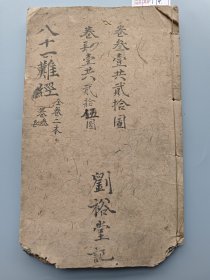 八十一難經
全卷二本
卷叁壹共貳拾圓
卷和壹共貳拾伍圓
劉裕堂記